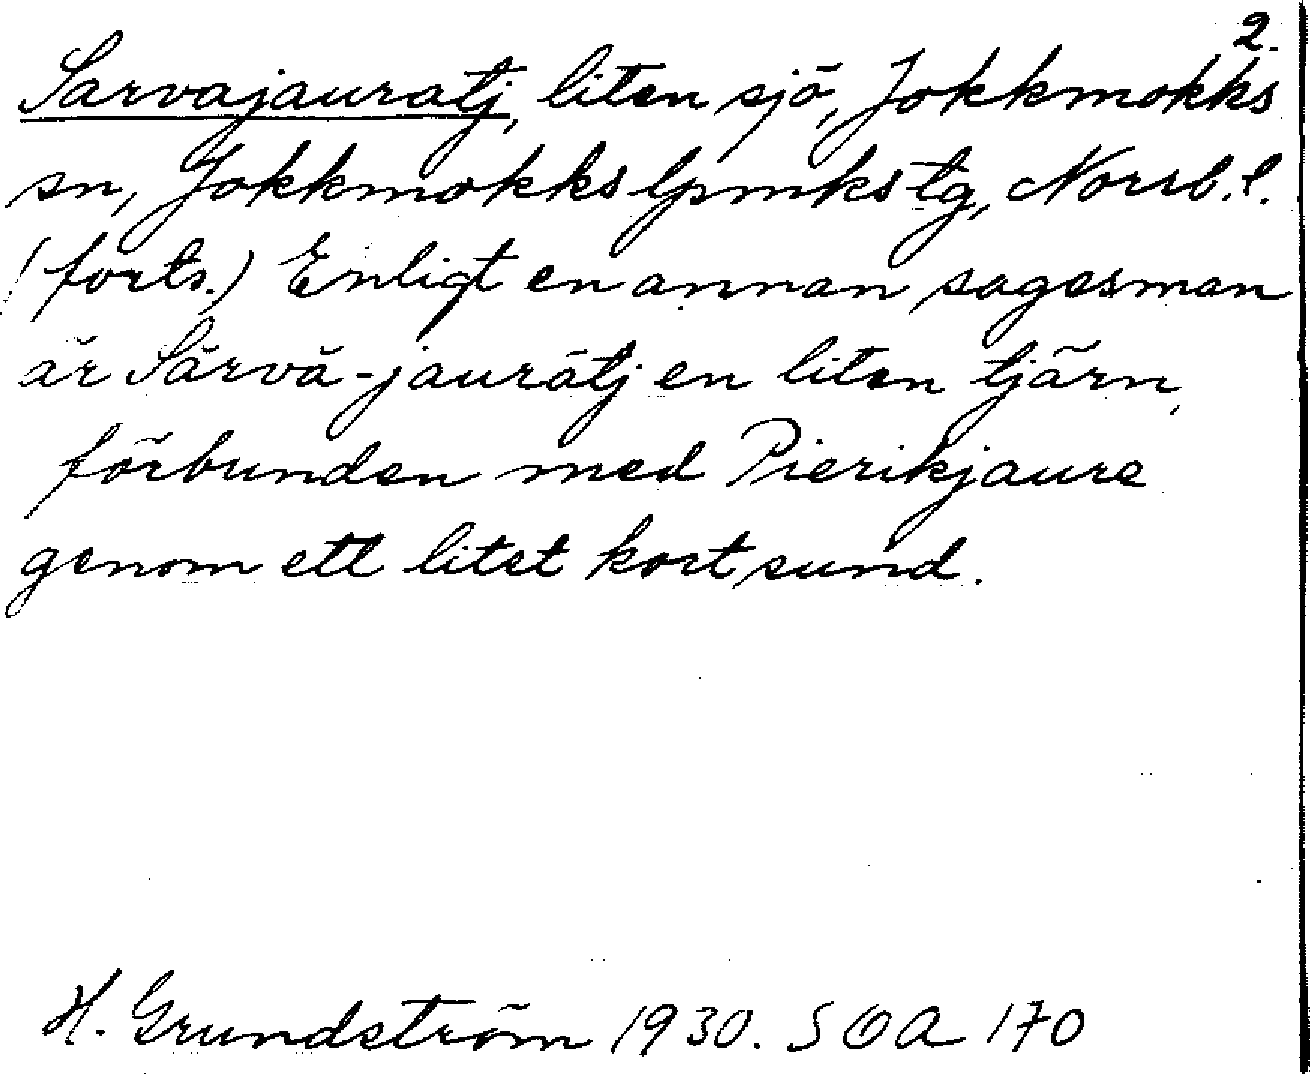 2.
Sarvajauratj, liten sjö, Jokkmokks
sn, Jokkmokks lpmkstg, Norrb. l.
(forts.) Enligt en annan sagesman
är Sārvā-jaurātj en liten tjärn,
förbunden med Pierikjaure
genom ett litet kort sund.
H. Grundström 1930. SOA 170